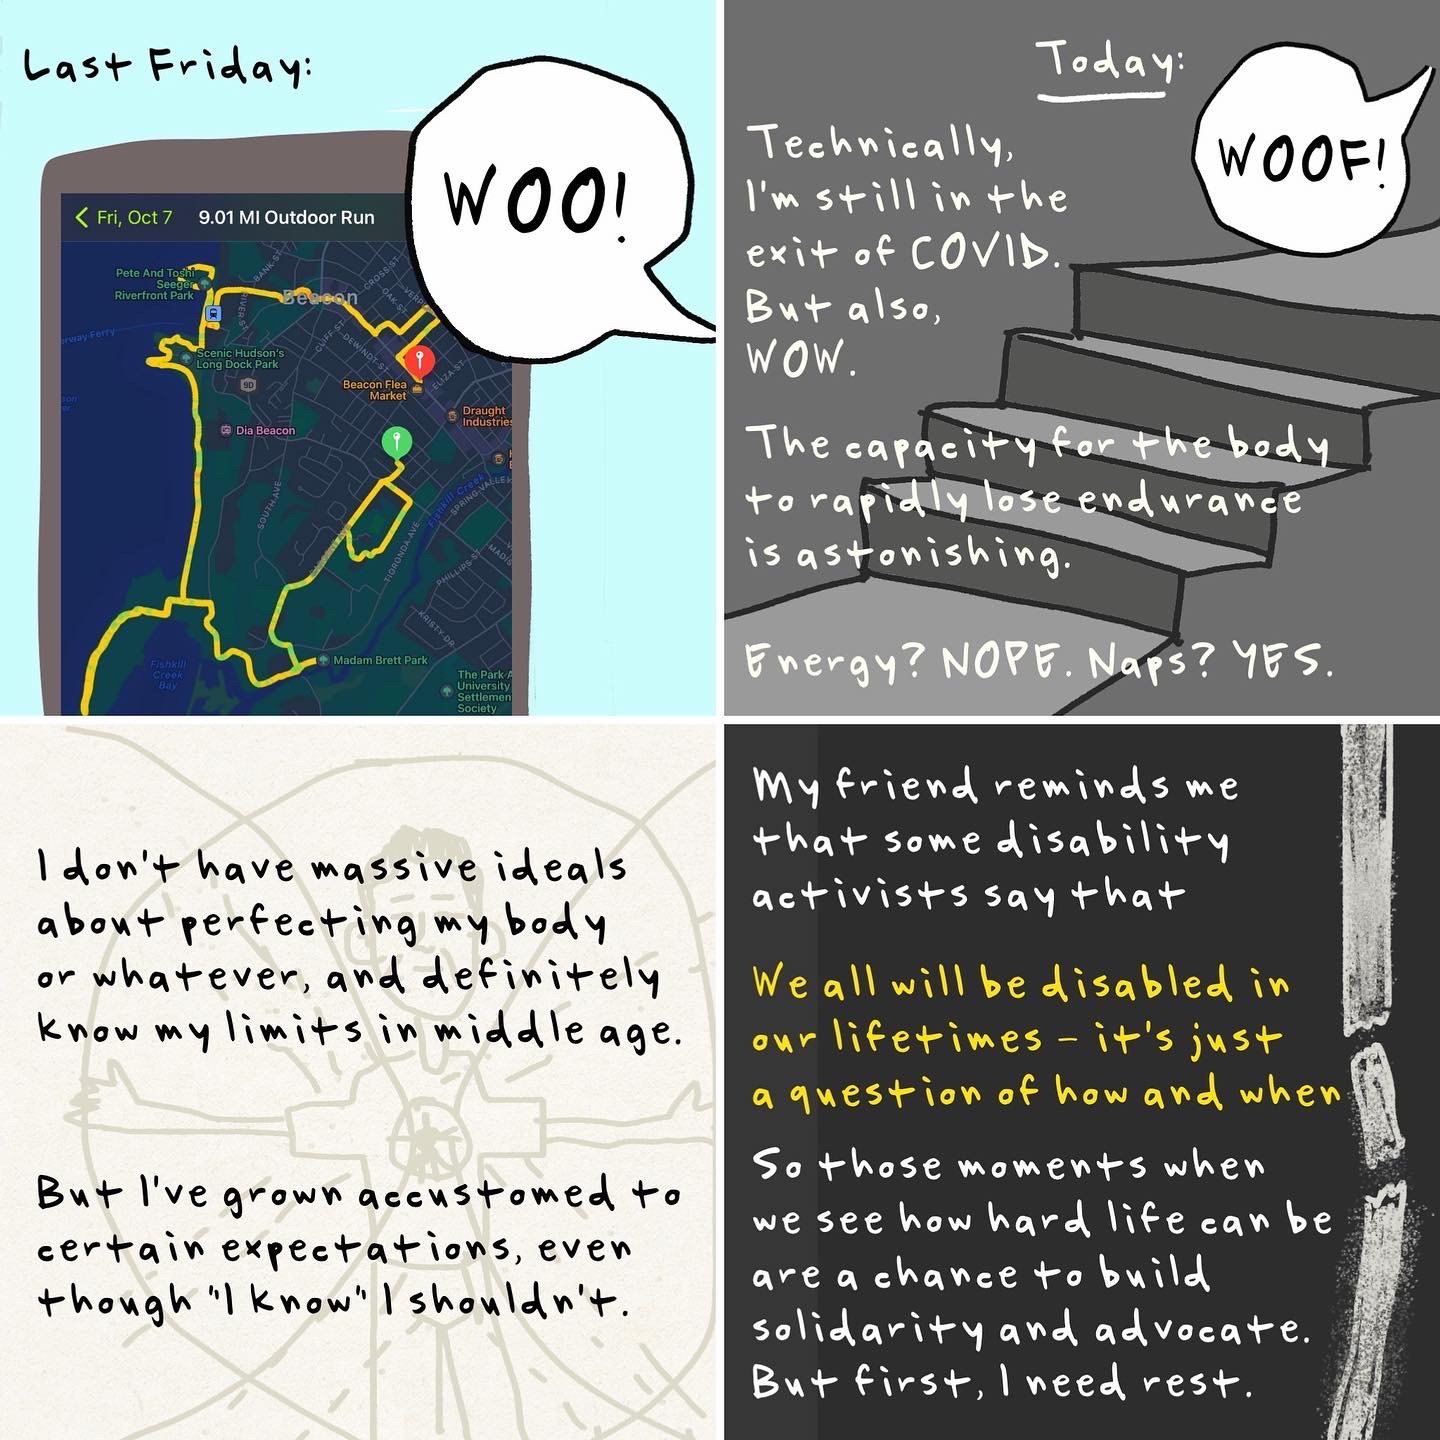 Last Friday:
WOO!
Fri, Oct 7 9.01 MI Outdoor Run
Pete And Toshi
Seeger
Riverfront Park
Beacon
BANK ST
RIVER S
CROSS ST
OAK ST
VERP
CLIFF ST
DEWINDT S
ELIZA ST
erway Ferry
Scenic Hudson's
Long Dock Park
9D
Beacon Flea
Market
Draught
Industries
Dia Beacon
SOUTH AVE
Fishkill Creek
SPRING VALLEY
TIORONDA AVE
MADIS
PHILLIPS ST
KRISTY DR
Madam Brett Park
Fishkill
Creek
Bay
The Park A
University
Settlemen
Society
Today:
WOOF!
Technically,
I'm still in the
exit of COVID.
But also,
WOW.
The capacity for the body
to rapidly lose endurance
is astonishing.
Energy? NOPE. Naps? YES.
I don't have massive ideals
about perfecting my body
or whatever, and definitely
know my limits in middle age.
But I've grown accustomed to
certain expectations, even
though "I know" I shouldn't.
My friend reminds me
that some disability
activists say that
We all will be disabled in
our lifetimes – it's just
a question of how and when
So those moments when
we see how hard life can be
are a chance to build
solidarity and advocate.
But first, I need rest.